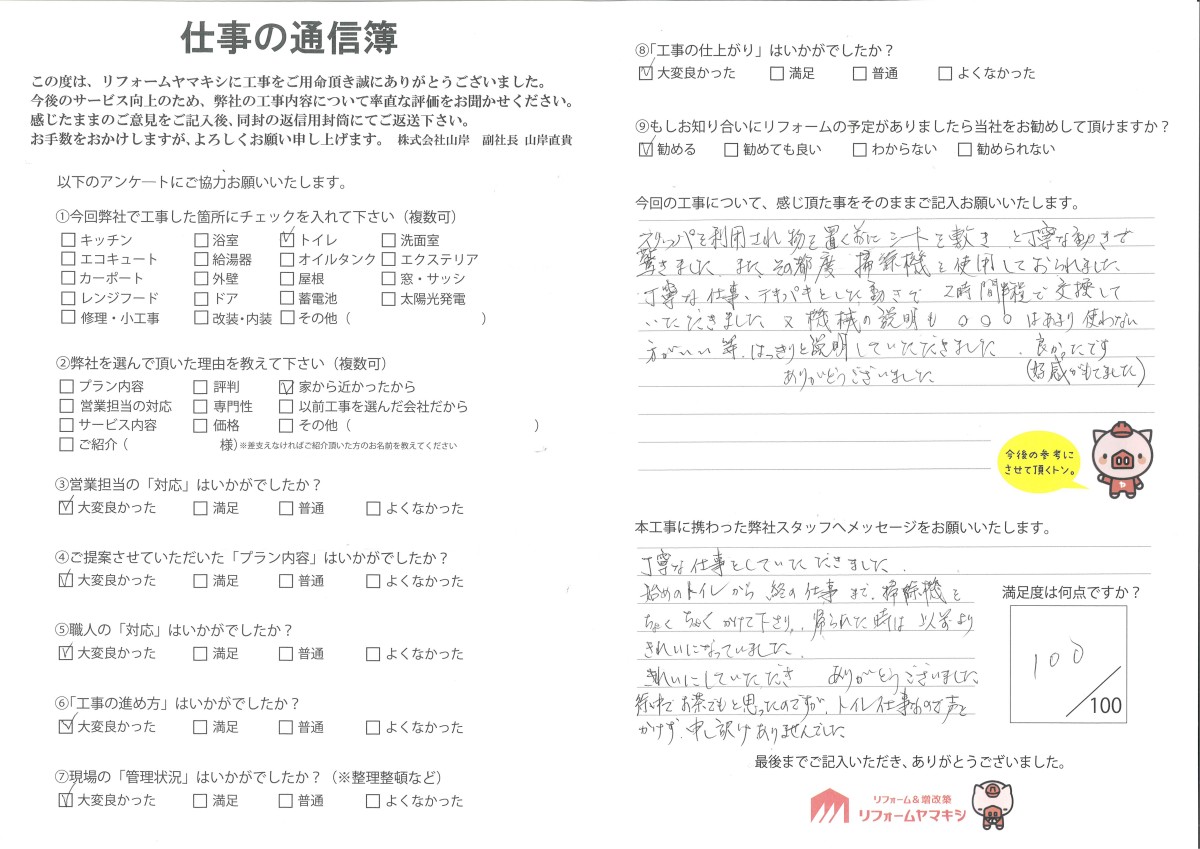 仕事の通信簿
この度は、リフォームヤマキシに工事をご用命頂き誠にありがとうございました。
今後のサービス向上のため、弊社の工事内容について率直な評価をお聞かせください。
感じたままのご意見をご記入後、同封の返信用封筒にてご返送下さい。
お手数をおかけしますが、よろしくお願い申し上げます。 株式会社山岸 副社長 山岸直貴
以下のアンケートにご協力お願いいたします。
①今回弊社で工事した箇所にチェックを入れて下さい（複数可）
□ キッチン □ 浴室 ☑ トイレ □ 洗面室
□ エコキュート □ 給湯器 □ オイルタンク □ エクステリア
□ カーポート □ 外壁 □ 屋根 □ 窓・サッシ
□ レンジフード □ ドア □ 蓄電池 □ 太陽光発電
□ 修理・小工事 □ 改装・内装 □ その他（ ）
②弊社を選んで頂いた理由を教えて下さい（複数可）
□ プラン内容 □ 評判 ☑ 家から近かったから
□ 営業担当の対応 □ 専門性 □ 以前工事を選んだ会社だから
□ サービス内容 □ 価格 □ その他（ ）
□ ご紹介（ 様）※差支えなければご紹介頂いた方のお名前を教えてください
③営業担当の「対応」はいかがでしたか？
☑ 大変良かった □ 満足 □ 普通 □ よくなかった
④ご提案させていただいた「プラン内容」はいかがでしたか？
☑ 大変良かった □ 満足 □ 普通 □ よくなかった
⑤職人の「対応」はいかがでしたか？
☑ 大変良かった □ 満足 □ 普通 □ よくなかった
⑥「工事の進め方」はいかがでしたか？
☑ 大変良かった □ 満足 □ 普通 □ よくなかった
⑦現場の「管理状況」はいかがでしたか？（※整理整頓など）
☑ 大変良かった □ 満足 □ 普通 □ よくなかった
⑧「工事の仕上がり」はいかがでしたか？
☑ 大変良かった □ 満足 □ 普通 □ よくなかった
⑨もしお知り合いにリフォームの予定がありましたら当社をお勧めして頂けますか？
☑ 勧める □ 勧めても良い □ わからない □ 勧められない
今回の工事について、感じ頂た事をそのままご記入お願いいたします。
スリッパを利用され物を置く前にシートを敷き と丁寧な動きで
驚きました。また、その都度 掃除機を使用しておられました
丁寧な仕事、テキパキとした動きで 2時間半程で交換して
いただきました 又 機械の説明も ○○○はあまり使わない
方がいい 等、はっきりと説明していただきました 。良かったです
ありがとうございました (好感がもてました)
今後の参考に
させて頂くトン。
本工事に携わった弊社スタッフへメッセージをお願いいたします。
丁寧な仕事をしていただきました。
始めのトイレから 終の仕事まで、掃除機を
ちょくちょくかけて下さり、帰られた時は 以前より
きれいになっていました。
きれいにしていただき ありがとうございました
お茶でもと思ったのですが、トイレ仕事なので声を
かけず、申し訳ありませんでした
満足度は何点ですか？
100
/100
最後までご記入いただき、ありがとうございました。
リフォーム&増改築
リフォームヤマキシ